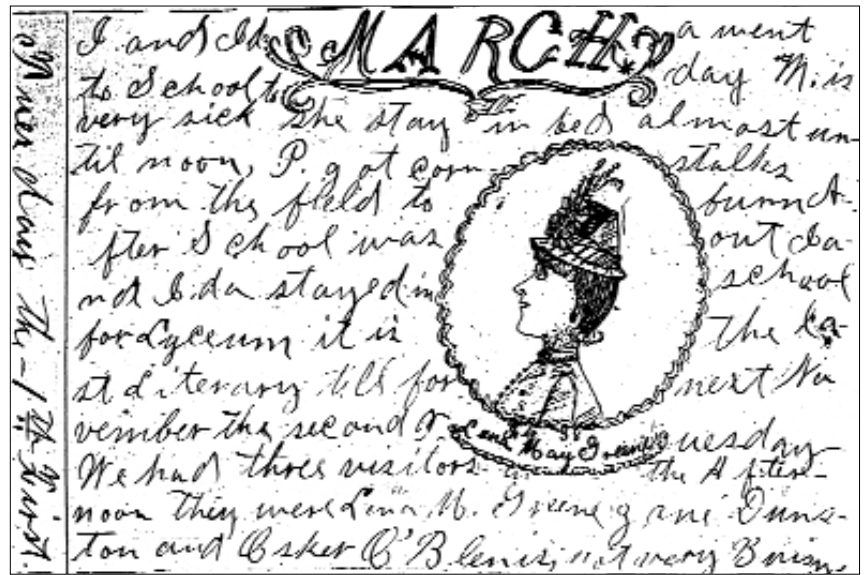 MARCH
I and Ida went
to School to day M. is
very sick she stay in bed almost un-
til noon, P. got corn stalks
from the field to burn A-
fter School was out Ia-
nd Ida stayed in school
for Lyceum it is The la-
st Literary till for next No
vember the second Tuesday
We had three visitors in the After-
noon They were Lena M. Greene
ton and Osker O'Blenis, not very
Lena May Greene